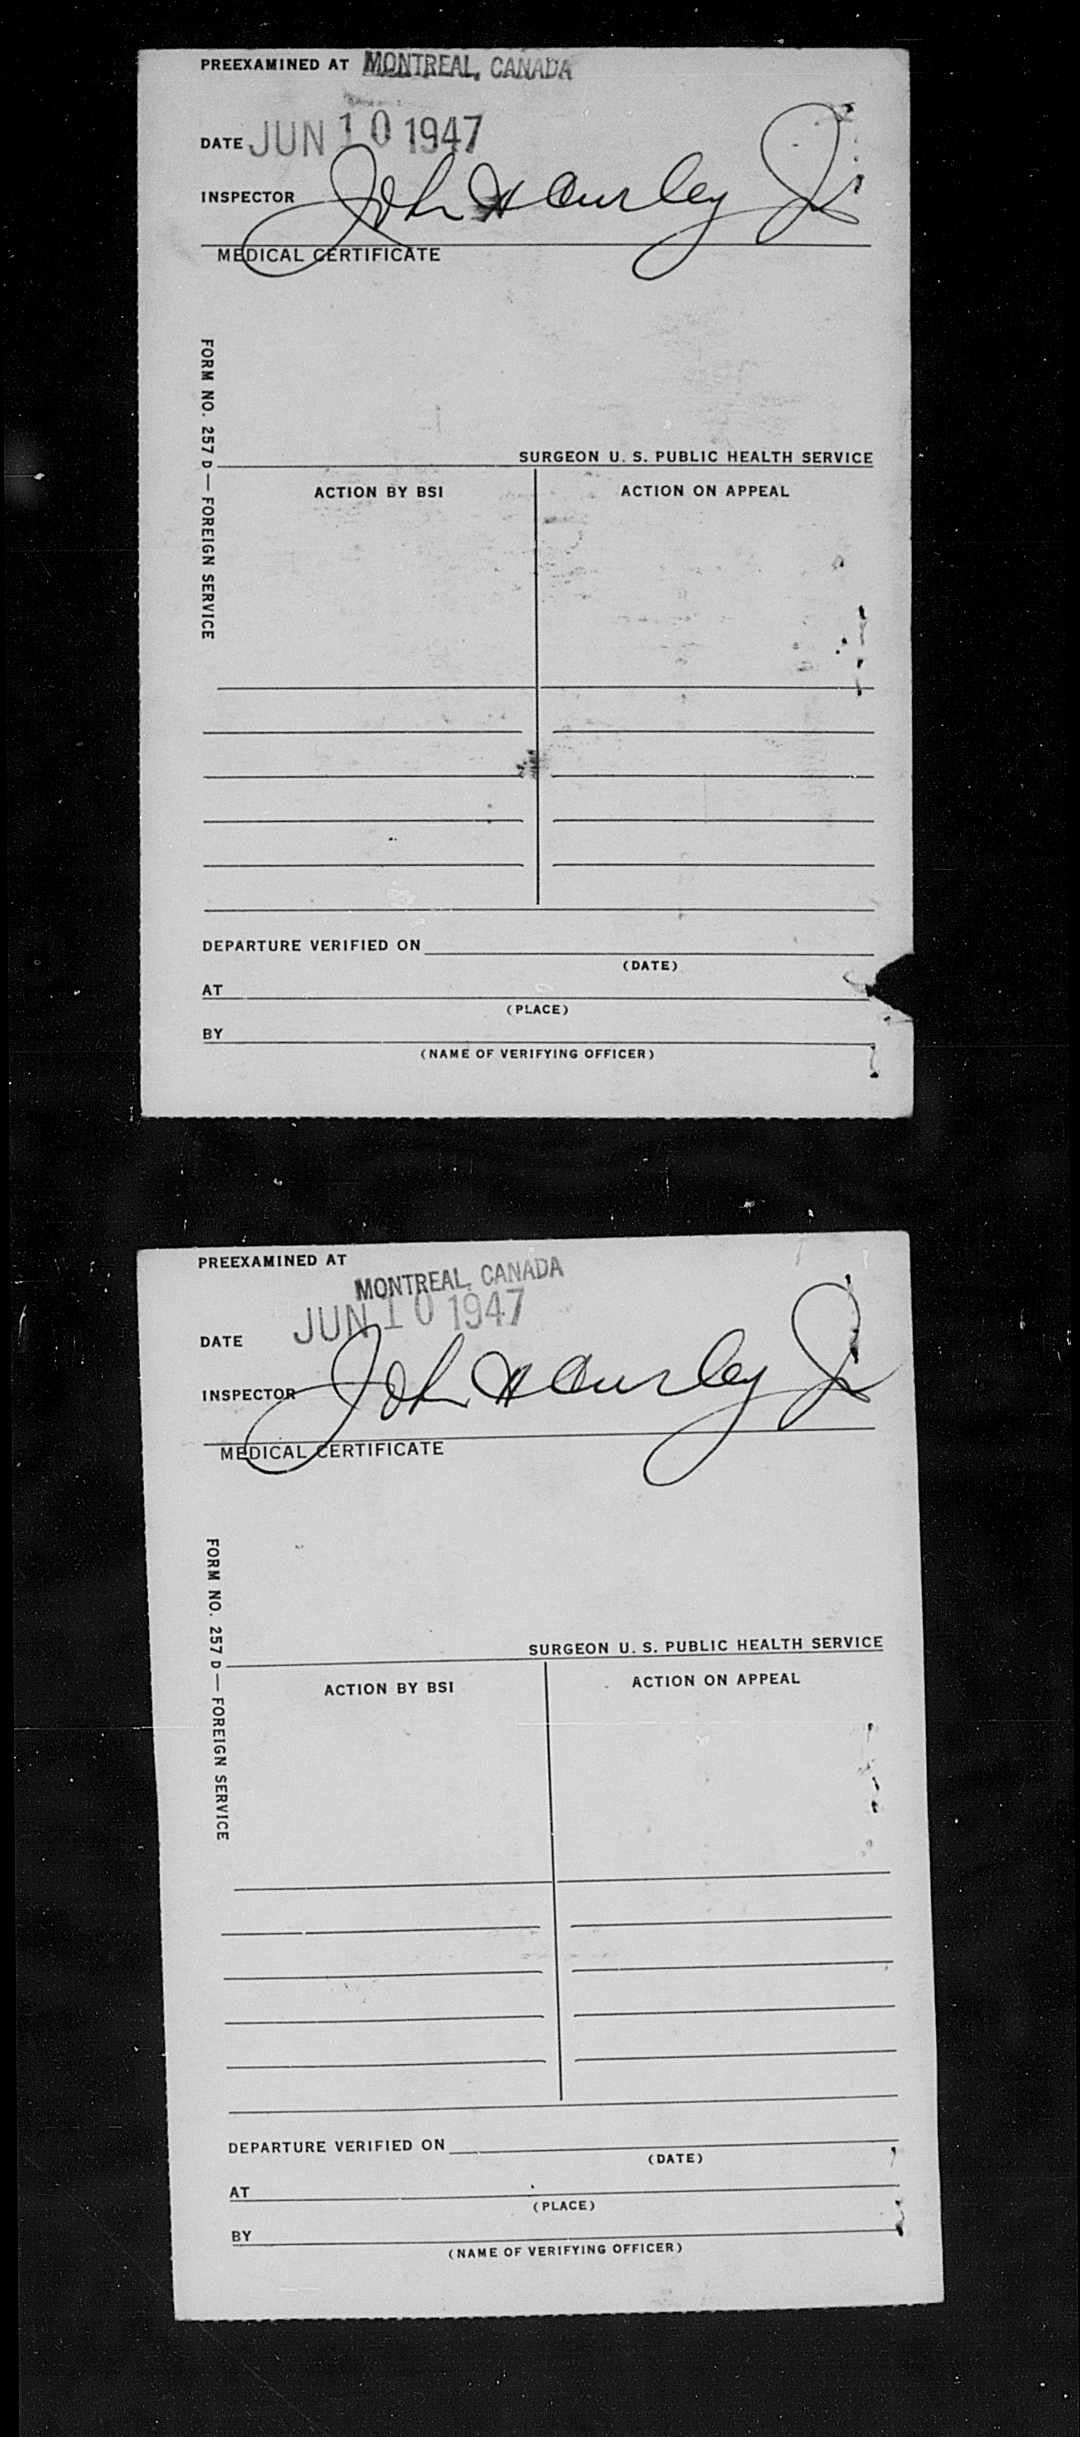 PREEXAMINED AT MONTREAL, CANADA
DATE JUN 10 1947
INSPECTOR John H Curley Jr
MEDICAL CERTIFICATE
FORM NO. 257 D — FOREIGN SERVICE
SURGEON U. S. PUBLIC HEALTH SERVICE
ACTION BY BSI
ACTION ON APPEAL
DEPARTURE VERIFIED ON
(DATE)
AT
(PLACE)
BY
(NAME OF VERIFYING OFFICER)
PREEXAMINED AT
MONTREAL, CANADA
DATE JUN 10 1947
INSPECTOR John H Curley Jr
MEDICAL CERTIFICATE
FORM NO. 257 D — FOREIGN SERVICE
SURGEON U. S. PUBLIC HEALTH SERVICE
ACTION BY BSI
ACTION ON APPEAL
DEPARTURE VERIFIED ON
(DATE)
AT
(PLACE)
BY
(NAME OF VERIFYING OFFICER)